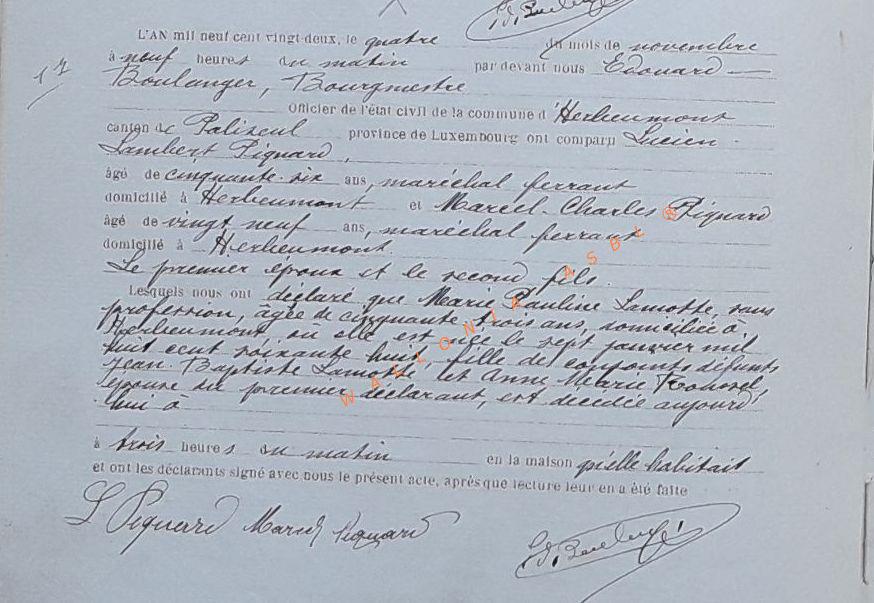 Ed. Boulanger
17
L'AN mil neuf cent vingt-deux, le quatre du mois de novembre
à neuf heures du matin par devant nous Edouard
Boulanger, Bourgmestre
Officier de l'état civil de la commune d'Herbeumont
canton de Paliseul province de Luxembourg ont comparu Lucien
Lambert Pignard,
âgé de cinquante-six ans, maréchal ferrant
domicilié à Herbeumont et Marcel-Charles Pignard
âgé de vingt neuf ans, maréchal ferrant
domicilié à Herbeumont.
Le premier époux et le second fils.
Lesquels nous ont déclaré que Marie Pauline Lamotte, sans
profession, âgée de cinquante trois ans, domiciliée à
Herbeumont, où elle est née le sept janvier mil
huit cent soixante huit, fille de conjoints défunts
Jean-Baptiste Lamotte et Anne Marie
épouse du premier déclarant, est décédée aujourd'
hui à
à trois heures du matin en la maison qu'elle habitait
et ont les déclarants signé avec nous le présent acte, après que lecture leur en a été faite
L Pignard Marcel Pignard Ed. Boulanger
WALLONIA ASBL ©